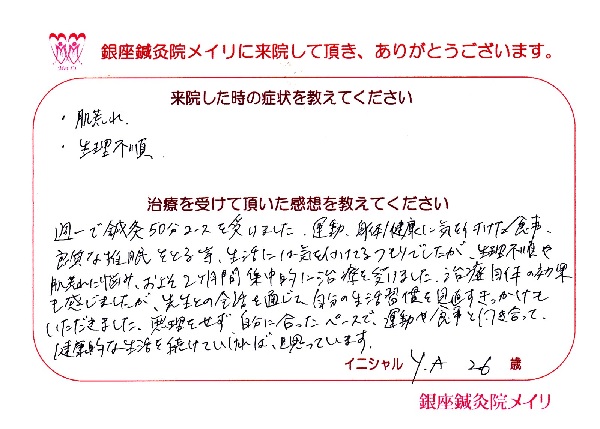 銀座鍼灸院メイリに来院して頂き、ありがとうございます。
来院した時の症状を教えてください
・肌荒れ
・生理不順
治療を受けて頂いた感想を教えてください
週一で鍼灸50分コースを受けました。運動、身体/健康に気を付けた食事、
良質な睡眠をとる等、生活には気を付けてるつもりでしたが、生理不順や
肌荒れに悩み、およそ2ヶ月間集中的に治療を受けました。治療自体の効果
も感じましたが、先生との会話を通じて、自分の生活習慣を見直すきっかけも
いただきました。無理をせず、自分に合ったペースで、運動や食事と付き合って、
健康的な生活を続けていければ、と思っています。
イニシャル Y.A 26 歳
銀座鍼灸院メイリ